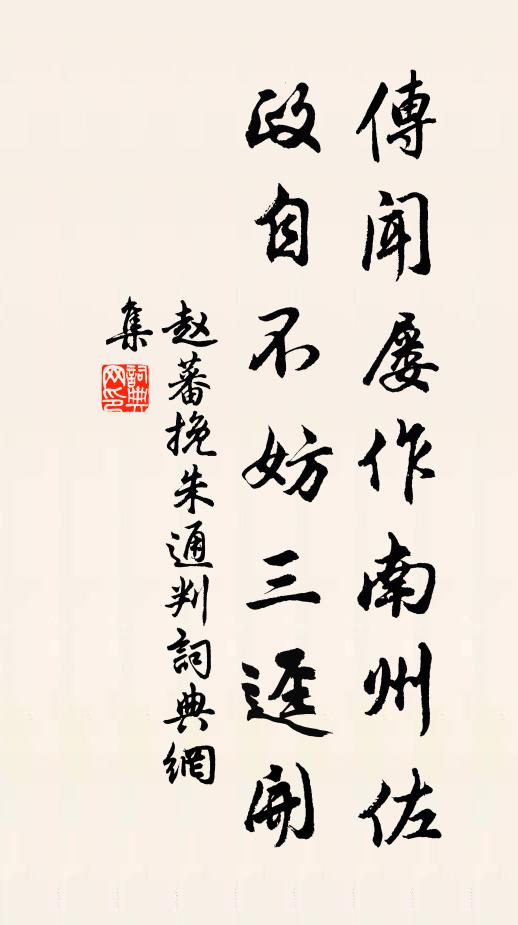 傳聞屡作南州佐
政自不妨三逕開
赵蕃挽朱通判詞典網
集
詞典網印